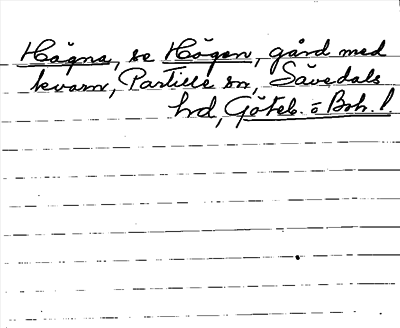 Högna, se Högen, gård med
kvarn, Partille sn, Sävedals
hd, Göteb. o Boh. l